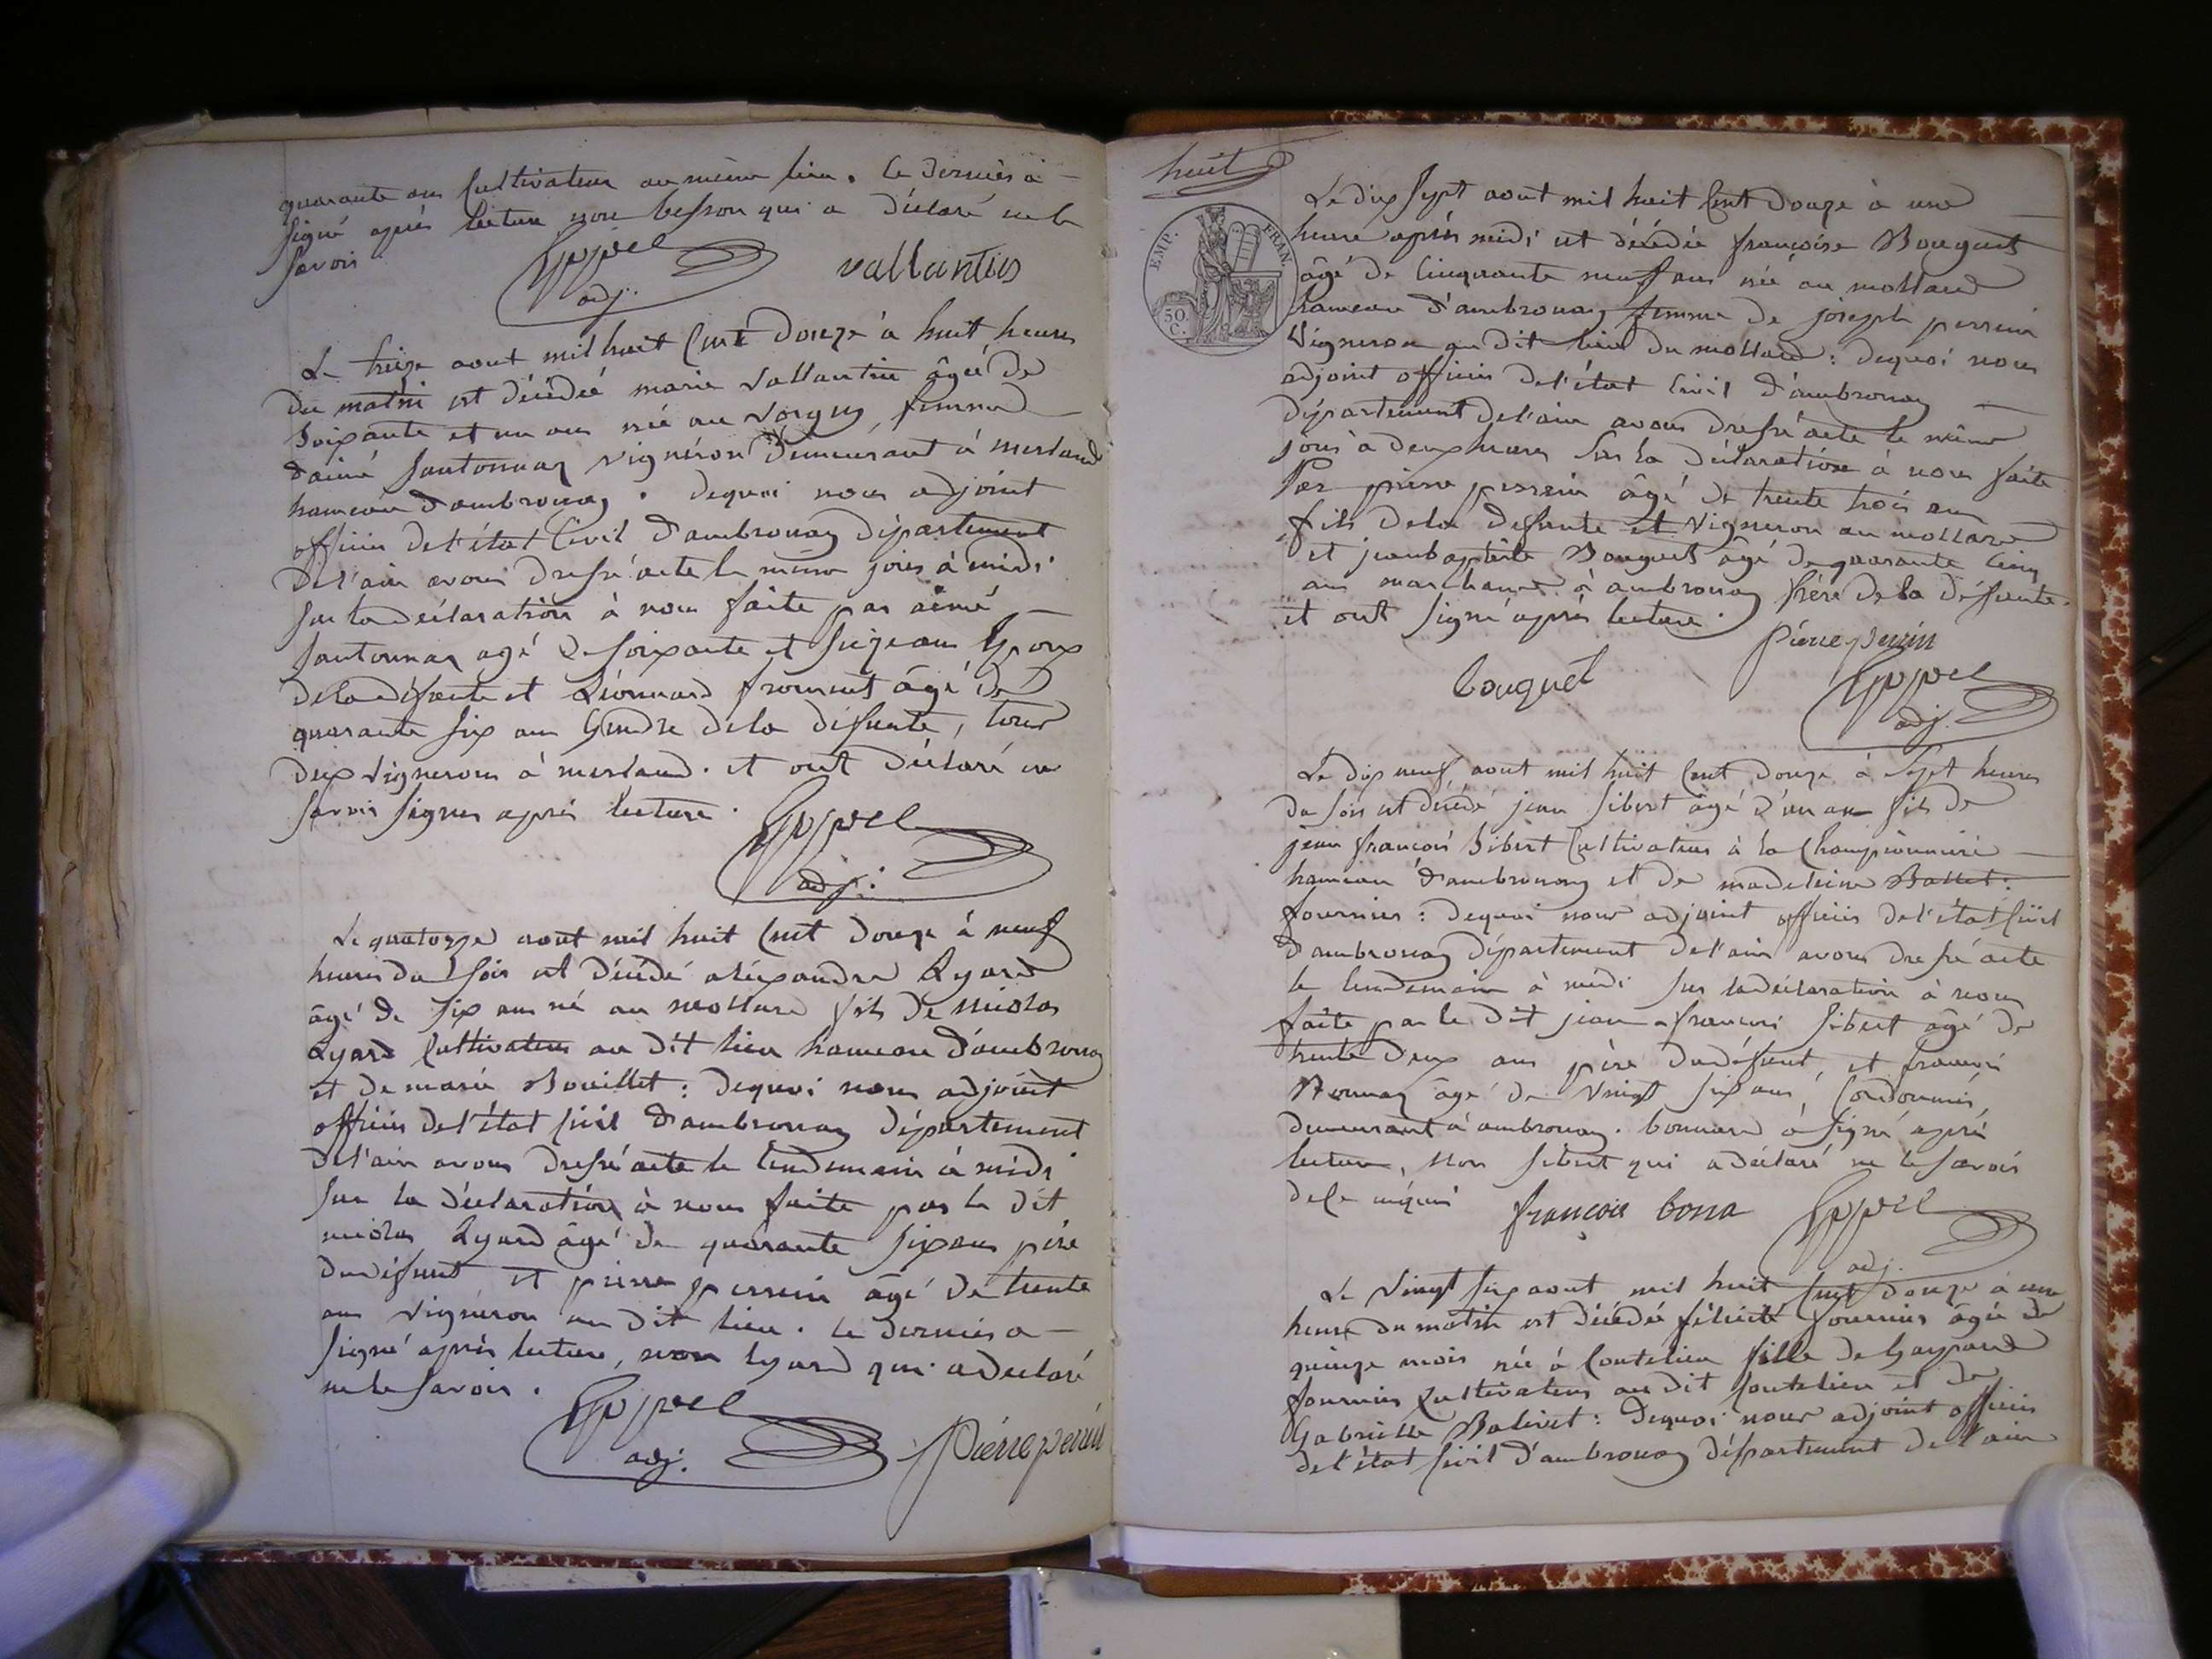 quarante ans Cultivateur au même lieu. le dernier a
signé après lecture non besson qui a déclaré ne le
savoir
adj.
vallantin
Le treize aout mil huit Cent douze à huit heures
du matin est décédée marie vallantin âgée de
soixante et un ans née au vorgey, femme
d'aimé fantonnay vignéron demeurant à merland
hameau d'ambronay. dequoi nous adjoint
officier de l'état Civil d'ambronay département
de l'ain avons dressé acte le même jour à midi
sur la déclaration à nous faite par aimé
fantonnay agé de soixante et seize ans Epoux
de la défunte et Léonnard froment âgé de
quarante six ans Gendre de la défunte, tous
deux vignerons à merland. et ont déclaré ne
savoir signer après lecture.
adj.
Le quatorze aout mil huit Cent douze à neuf
heures du soir est décédé aléxandre Lyard
âgé de six ans né au mollard fils de nicolas
Lyard Cultivateur au dit lieu hameau d'ambronay
et de marie Bouillet : dequoi nous adjoint
officier de l'état Civil d'ambronay département
de l'ain avons dressé acte le lendemain à midi
sur la déclaration à nous faite par le dit
nicolas Lyard âgé de quarante six ans père
du défunt et pierre perrein âgé de trente
ans vigneron au dit lieu. le dernier a
signé après lecture, non lyard qui a declaré
ne le savoir.
adj.
pierre perrin
huit
EMP. FRAN.
50 C.
Le dix sept aout mil huit Cent douze à une
heure après midi est décédée françoise Bouguet
âgé de Cinquante neuf ans née au mollard
hameau d'ambronay femme de joseph perrein
Vigneron au dit lieu du mollard : dequoi nous
adjoint officier de l'état Civil d'ambronay
département de l'ain avons dressé acte le même
jour à deux heures sur la déclaration à nous faite
Par pierre perrein âgé de trente trois ans
fils de la defunte et vigneron au mollard
et jean baptiste Bouguet âgé de quarante Cinq
ans marchand à ambronay frère de la défunte.
et ont signé après lecture.
pierre perrin
bouguet
adj.
Le dix neuf aout mil huit Cent douze à sept heures
du soir est décédé jean sibert âgé d'un an fils de
jean francois sibert Cultivateur à la Championnière
hameau d'ambronay et de madeleine Ballet :
fournier : dequoi nous adjoint officier de l'état Civil
d'ambronay département de l'ain avons dressé acte
le lendemain à midi sur la déclaration à nous
faite par le dit jean-francois sibert âgé de
trente deux ans père du défunt, et francois
âgé de vingt six ans, Cordonnier,
demeurant à ambronay. bonnard a signé après
lecture, non sibert qui a déclaré ne le savoir
de ce enquis
françois bona
adj.
Le vingt six aout mil huit Cent douze à une
heure du matin est décédée félicité fournier âgée de
quinze mois née à Coutelieu fille de Gaspard
fournier Cultivateur au dit Coutelieu et de
Gabrielle Balivet : dequoi nous adjoint officier
de l'état Civil d'ambronay département de l'ain